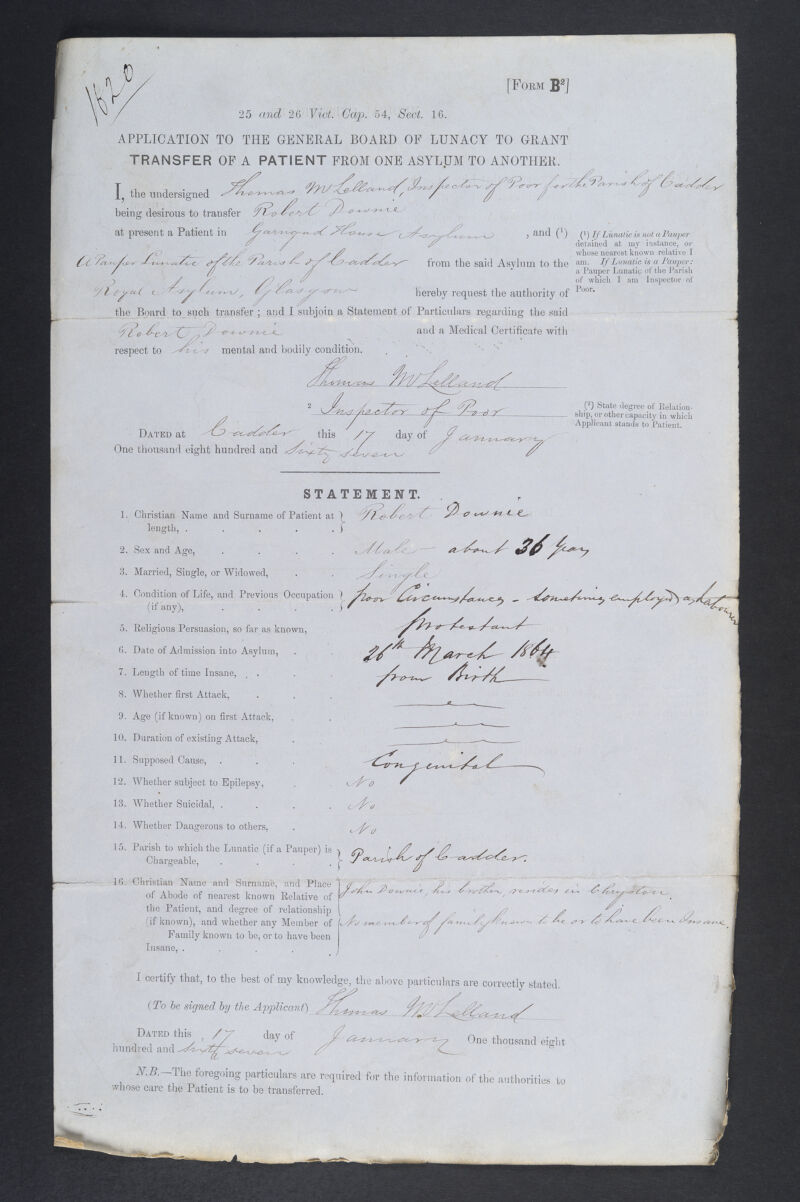 1620
[FORM B²]
25 and 26 Vict. Cap. 54, Sect. 16.
APPLICATION TO THE GENERAL BOARD OF LUNACY TO GRANT
TRANSFER OF A PATIENT FROM ONE ASYLUM TO ANOTHER.
I, the undersigned Thomas McLelland, Inspector of Poor for the Parish of Cadder
being desirous to transfer Robert Downie
at present a Patient in Garngad House Asylum , and (¹)
A Pauper Lunatic of the Parish of Cadder from the said Asylum to the
Royal Asylum, Glasgow hereby request the authority of
the Board to such transfer ; and I subjoin a Statement of Particulars regarding the said
Robert Downie and a Medical Certificate with
respect to his mental and bodily condition.
(¹) If Lunatic is not a Pauper
detained at my instance, or
whose nearest known relative I
am. If Lunatic is a Pauper:
a Pauper Lunatic of the Parish
of which I am Inspector of
Poor.
Thomas McLelland
² Inspector of Poor
(²) State degree of Relation-
ship, or other capacity in which
Applicant stands to Patient.
DATED at Cadder this 17 day of January
One thousand eight hundred and Sixty seven
STATEMENT.
1. Christian Name and Surname of Patient at
length, . . . . . } Robert Downie
2. Sex and Age, . . . . Male - about 36 Years
3. Married, Single, or Widowed, . . Single
4. Condition of Life, and Previous Occupation
(if any), . . . . } poor Circumstances - sometimes employed as Labourer
5. Religious Persuasion, so far as known, protestant
6. Date of Admission into Asylum, . . 26th March 1864
7. Length of time Insane, . . . from Birth
8. Whether first Attack, . . .
9. Age (if known) on first Attack, . .
10. Duration of existing Attack, .
11. Supposed Cause, . . . . Congenital
12. Whether subject to Epilepsy, . No
13. Whether Suicidal, . . . . No
14. Whether Dangerous to others, . No
15. Parish to which the Lunatic (if a Pauper) is
Chargeable, . . . . } Parish of Cadder.
16. Christian Name and Surname, and Place
of Abode of nearest known Relative of
the Patient, and degree of relationship
(if known), and whether any Member of
Family known to be, or to have been
Insane, . . . . .
John Downie, his brother, resides in Chryston.
No member of family known to be or to have been Insane.
I certify that, to the best of my knowledge, the above particulars are correctly stated.
(To be signed by the Applicant) Thomas McLelland
DATED this 17 day of January One thousand eight
hundred and sixty seven
N.B.—The foregoing particulars are required for the information of the authorities to
whose care the Patient is to be transferred.